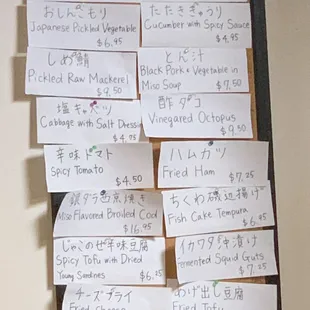 おしんこもり
Japanese Pickled Vegetable
$6.95
たたききゅうり
Cucumber with Spicy Sauce
$4.95
しめ鯖
Pickled Raw Mackerel
$9.50
とん汁
Black Pork & Vegetable in
Miso Soup
$7.50
塩キャベツ
Cabbage with Salt Dressing
$4.95
酢ダコ
Vinegared Octopus
$9.50
辛味トマト
Spicy Tomato
$4.50
ハムカツ
Fried Ham
$7.25
銀ダラ西京焼き
Miso Flavored Broiled Cod
$16.95
ちくわ磯辺揚げ
Fish Cake Tempura
$6.95
じゃこのせ辛味豆腐
Spicy Tofu with Dried
Young Sardines
$6.25
イカワタ
漬け
Fermented Squid Guts
$7.25
チーズフライ
Fried Cheese
あげ出し豆腐
Fried Tofu